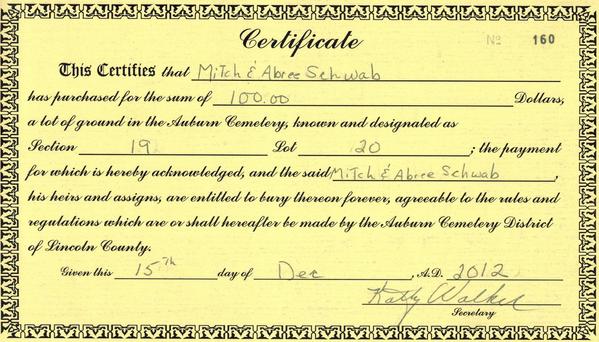 Certificate
No 160
This Certifies that Mitch & Abree Schwab
has purchased for the sum of 100.00 Dollars,
a lot of ground in the Auburn Cemetery, known and designated as
Section 19 Lot 20 ; the payment
for which is hereby acknowledged, and the said Mitch & Abree Schwab ,
his heirs and assigns, are entitled to bury thereon forever, agreeable to the rules and
regulations which are or shall hereafter be made by the Auburn Cemetery District
of Lincoln County.
Given this 15th day of Dec , A.D. 2012
Kathy Walker
Secretary